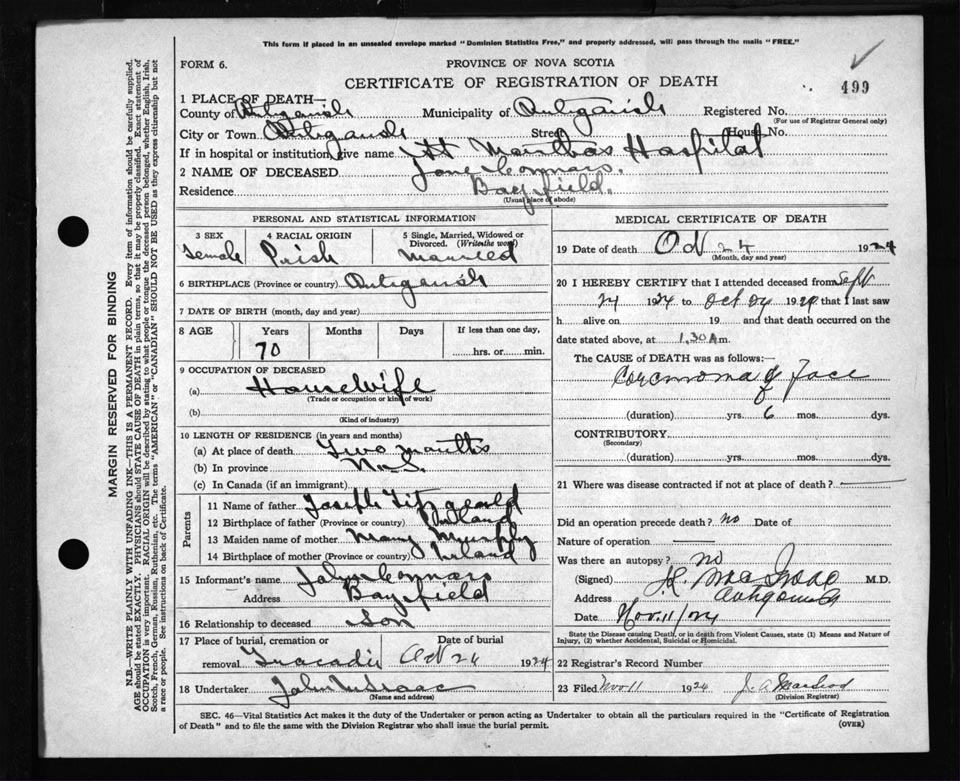 This form if placed in an unsealed envelope marked "Dominion Statistics Free," and properly addressed, will pass through the mails "FREE."
FORM 6.
PROVINCE OF NOVA SCOTIA
CERTIFICATE OF REGISTRATION OF DEATH
499
1 PLACE OF DEATH—
County of Antigonish Municipality of Antigonish Registered No.
(For use of Registrar General only)
City or Town Antigonish Street House No.
If in hospital or institution, give name St Marthas Hospital
2 NAME OF DECEASED Jane Connors.
Residence Bayfield.
(Usual place of abode)
PERSONAL AND STATISTICAL INFORMATION
3 SEX 4 RACIAL ORIGIN 5 Single, Married, Widowed or Divorced. (Write the word)
Female Irish Married
6 BIRTHPLACE (Province or country) Antigonish
7 DATE OF BIRTH (month, day and year)
8 AGE Years Months Days If less than one day,
70 hrs. or min.
9 OCCUPATION OF DECEASED
(a) Housewife
(Trade or occupation or kind of work)
(b)
(Kind of industry)
10 LENGTH OF RESIDENCE (in years and months)
(a) At place of death Two months
(b) In province N.S.
(c) In Canada (if an immigrant)
Parents
11 Name of father Joseph Fitzgerald
12 Birthplace of father (Province or country) Ireland
13 Maiden name of mother Mary Murphy
14 Birthplace of mother (Province or country) Irland
15 Informant's name John Connors
Address Bayfield
16 Relationship to deceased Son
17 Place of burial, cremation or Date of burial
removal Tracadie Oct 26 1924
18 Undertaker John McIsaac
(Name and address)
MEDICAL CERTIFICATE OF DEATH
19 Date of death Oct 24 1924
(Month, day and year)
20 I HEREBY CERTIFY that I attended deceased from Sept
24 1924 to Oct 24 1924 that I last saw
h alive on 19 and that death occurred on the
date stated above, at 1.30 A m.
The CAUSE of DEATH was as follows:—
Carcinoma of Face
(duration) yrs. 6 mos. dys.
CONTRIBUTORY
(Secondary)
(duration) yrs. mos. dys.
21 Where was disease contracted if not at place of death?
Did an operation precede death? no Date of
Nature of operation
Was there an autopsy? no
(Signed) MacIsaac M.D.
Address Antigonish
Date Nov. 11/24
State the Disease causing Death, or in death from Violent Causes, state (1) Means and Nature of
Injury, (2) whether Accidental, Suicidal or Homicidal.
22 Registrar's Record Number
23 Filed Nov 11 1924 J. A. MacLeod
(Division Registrar)
SEC. 46—Vital Statistics Act makes it the duty of the Undertaker or person acting as Undertaker to obtain all the particulars required in the "Certificate of Registration
of Death" and to file the same with the Division Registrar who shall issue the burial permit. (OVER)
MARGIN RESERVED FOR BINDING
N.B.—WRITE PLAINLY WITH UNFADING INK—THIS IS A PERMANENT RECORD. Every item of information should be carefully supplied.
AGE should be stated EXACTLY. PHYSICIANS should STATE CAUSE OF DEATH in plain terms, so that it may be properly classified. Exact statement of
OCCUPATION is very important. RACIAL ORIGIN will be described by stating to what people or tongue the deceased person belonged, whether English, Irish,
Scotch, French, German, Russian, Ruthenian, etc. The terms "AMERICAN" or "CANADIAN" SHOULD NOT BE USED as they express citizenship but not
a race or people. See instructions on back of Certificate.